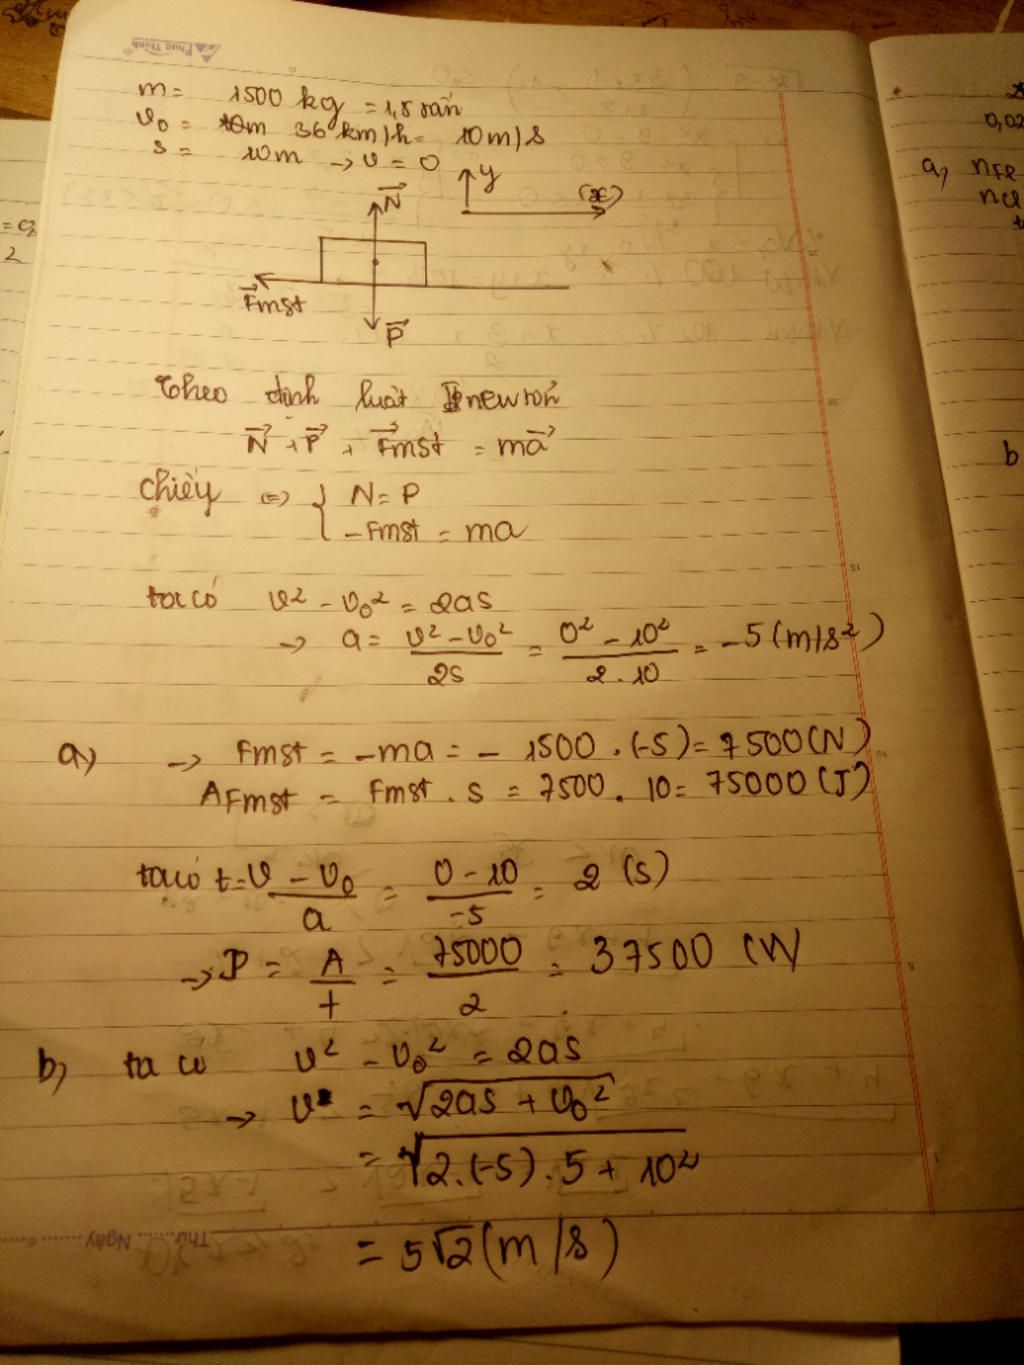 m = 1500 kg = 1,5 tấn
v₀ = 36 km/h = 10m/s
s = 10m → v = 0
N⃗
y
(x)
F⃗mst
P⃗
Theo định luật II newton
N⃗ + P⃗ + F⃗mst = ma⃗
chiếu ⇔ { N = P
-Fmst = ma
ta có v² - v₀² = 2as
→ a = (v² - v₀²)/2s = (0² - 10²)/(2.10) = -5 (m/s²)
a, → Fmst = -ma = -1500.(-5) = 7500 (N)
AFmst = Fmst.s = 7500.10 = 75000 (J)
ta có t = (v - v₀)/a = (0 - 10)/-5 = 2 (s)
→ P = A/t = 75000/2 = 37500 (W)
b, ta có v² - v₀² = 2as
→ v = √(2as + v₀²)
= √(2.(-5).5 + 10²)
= 5√2 (m/s)
Thứ ........ Ngày ........
Phúc Thịnh
0,02
a, nFe
nCl
b
2